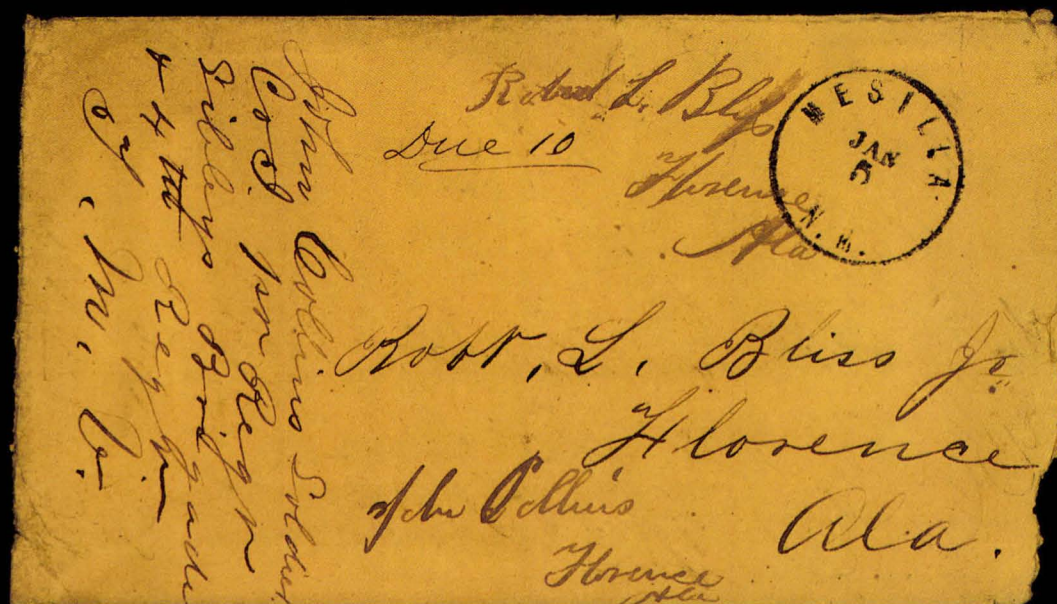 John Collins Soldier
Co. I. 1st Regn
Sibleys Briggade
& 4th Reg
of, M, V.
Robert L. Bliss
Due 10
Florence
Ala
MESILLA
JAN
5
N. M.
Robt, L. Bliss Jr.
Florence
Ala.
John Collins
Florence
Ala